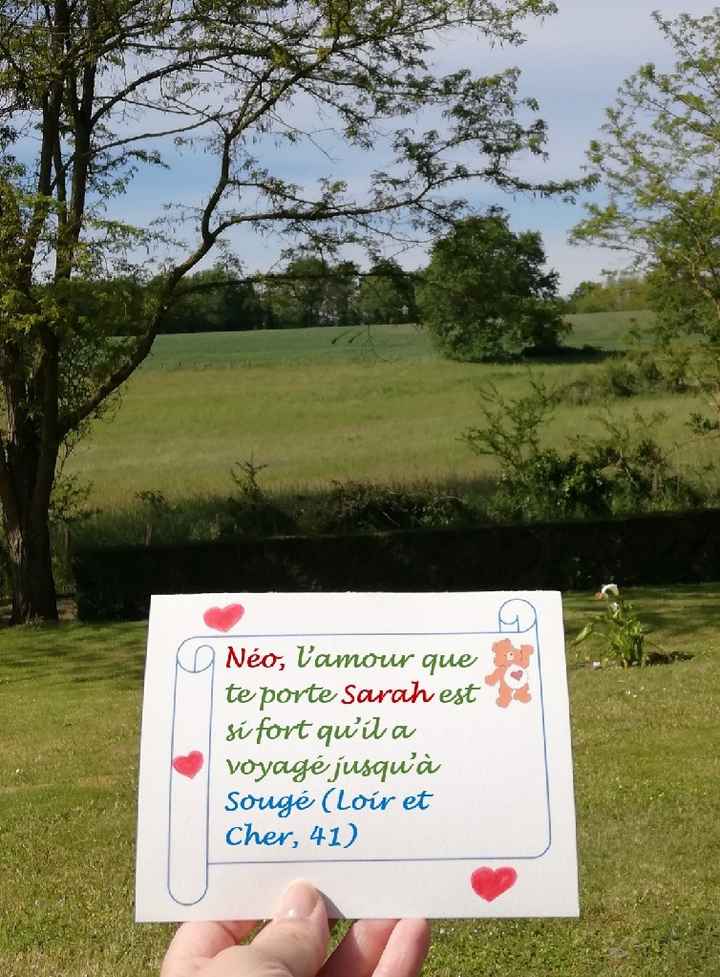 Néo, l'amour que
te porte Sarah est
si fort qu'il a
voyagé jusqu'à
Sougé (Loir et
Cher, 41)